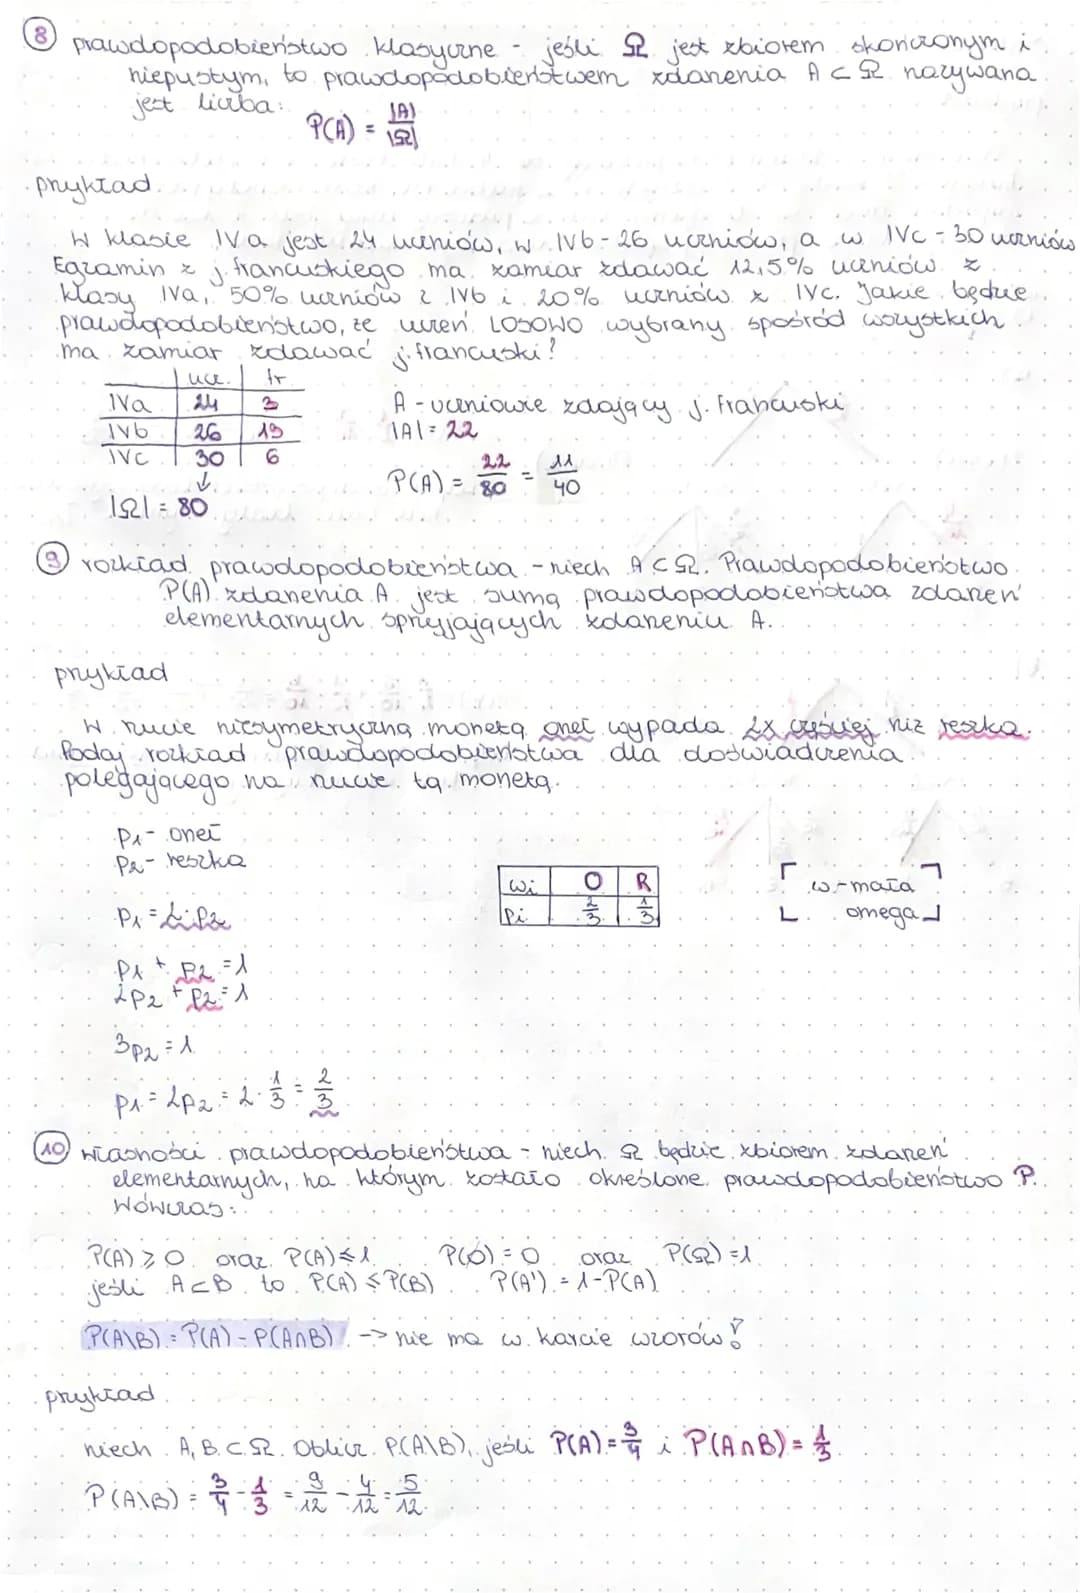 8 prawdopodobieństwo klasyczne - jeśli Ω jest zbiorem skończonym i
niepustym, to prawdopodobieństwem zdarzenia A ⊂ Ω nazywana
jest liczba:
P(A) = |A| / |Ω|
przykład
W klasie IVa jest 24 uczniów, w IVb - 26 uczniów, a w IVc - 30 uczniów
Egzamin z j. francuskiego ma zamiar zdawać 12,5% uczniów z
klasy IVa, 50% uczniów z IVb i 20% uczniów z IVc. Jakie będzie
prawdopodobieństwo, że uczeń LOSOWO wybrany spośród wszystkich
ma zamiar zdawać j. francuski?
ucz. fr
IVa 24 3
IVb 26 13
IVc 30 6
↓
|Ω| = 80
A - uczniowie zdający j. francuski
|A| = 22
P(A) = 22/80 = 11/40
9 rozkład prawdopodobieństwa - niech A ⊂ Ω. Prawdopodobieństwo
P(A) zdarzenia A jest sumą prawdopodobieństwa zdarzeń
elementarnych sprzyjających zdarzeniu A.
przykład
W rzucie niesymetryczną monetą orzeł wypada 2x częściej niż reszka.
Podaj rozkład prawdopodobieństwa dla doświadczenia
polegającego na rzucie tą monetą.
p₁ - orzeł
p₂ - reszka
p₁ = 2·p₂
p₁ + p₂ = 1
2p₂ + p₂ = 1
3p₂ = 1
p₁ = 2p₂ = 2 · 1/3 = 2/3
wi O R
pi 2/3 1/3
ω - mała
omega
10 własności prawdopodobieństwa - niech Ω będzie zbiorem zdarzeń
elementarnych, na którym zostało określone prawdopodobieństwo P.
Wówczas:
P(A) ⩾ 0 oraz P(A) ⩽ 1 P(∅) = 0 oraz P(Ω) = 1
jeśli A ⊂ B to P(A) ⩽ P(B) P(A') = 1 - P(A)
P(A\B) = P(A) - P(A∩B)! -> nie ma w karcie wzorów!
przykład
niech A, B ⊂ Ω. Oblicz P(A\B), jeśli P(A) = 3/4 i P(A∩B) = 1/3
P(A\B) = 3/4 - 1/3 = 9/12 - 4/12 = 5/12